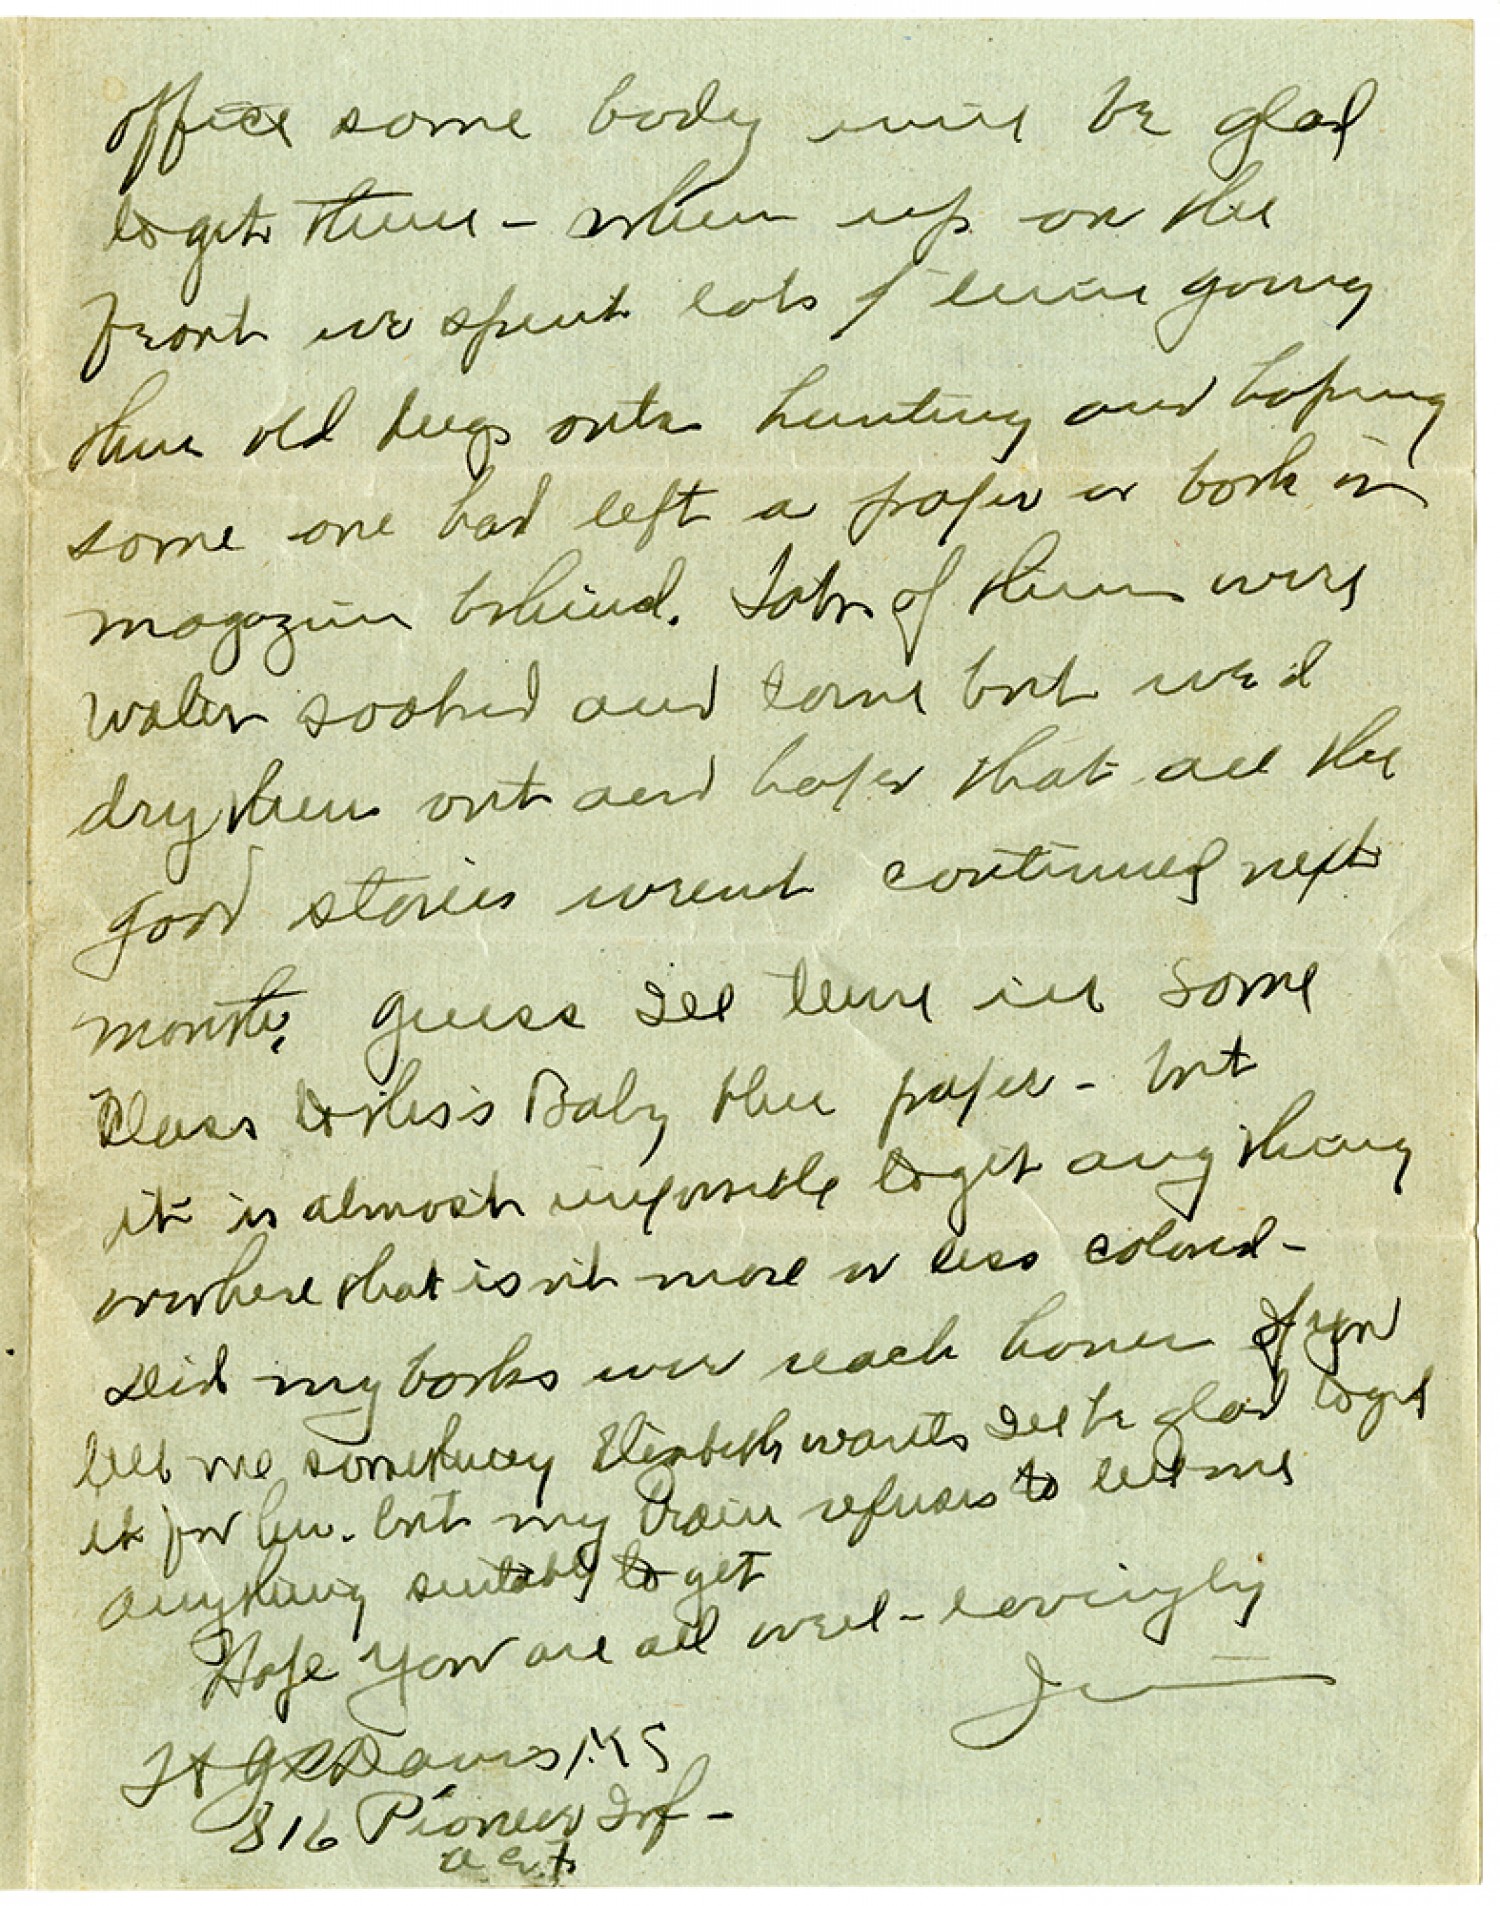 office some body will be glad
to get them - when up on the
front we spent lots of time going
thru old dugs outs hunting and hoping
some one had left a paper or book or
magazine behind. Lots of them were
water soaked and torn but we'd
dry them out and hope that all the
good stories weren't continued next
month. Guess I'll turn in some
class to this Baby blue paper - but
it is almost impossible to get any thing
over here that isn't more or less colored -
Did my books ever reach home If you
tell me something Elizabeth wants I'll be glad to get
it for her. but my brain refuses to tell me
anything suitable to get
Hope you are all well - lovingly
Lt Davis
816 Pioneer Inf -